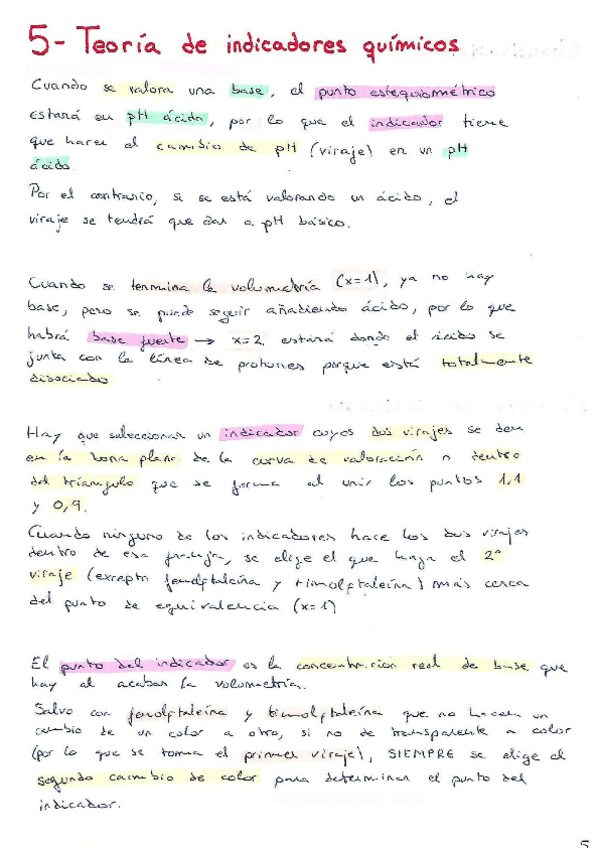 5- Teoría de indicadores químicos
Cuando se valora una base, el punto estequiométrico
estará en pH ácido, por lo que el indicador tiene
que hacer el cambio de pH (viraje) en un pH
ácido.
Por el contrario, si se está valorando un ácido, el
viraje se tendrá que dar a pH básico.
Cuando se termina la volumetría (x=1), ya no hay
base, pero se puede seguir añadiendo ácido, por lo que
habrá base fuerte → x=2 estará donde el ácido se
junta con la línea de protones porque está totalmente
disociado
Hay que seleccionar un indicador cuyos dos virajes se den
en la zona plana de la curva de valoración o dentro
del triángulo que se forma al unir los puntos 1,1
y 0,9.
Cuando ninguno de los indicadores hace los dos virajes
dentro de esa franja, se elige el que haga el 2º
viraje (excepto fenolftaleína y timolftaleína) más cerca
del punto de equivalencia (x=1)
El punto del indicador es la concentración real de base que
hay al acabar la volumetría.
Salvo con fenolftaleína y timolftaleína que no hacen un
cambio de un color a otro, si no de transparente a color
(por lo que se toma el primer viraje), SIEMPRE se elige el
segundo cambio de color para determinar el punto del
indicador.
5